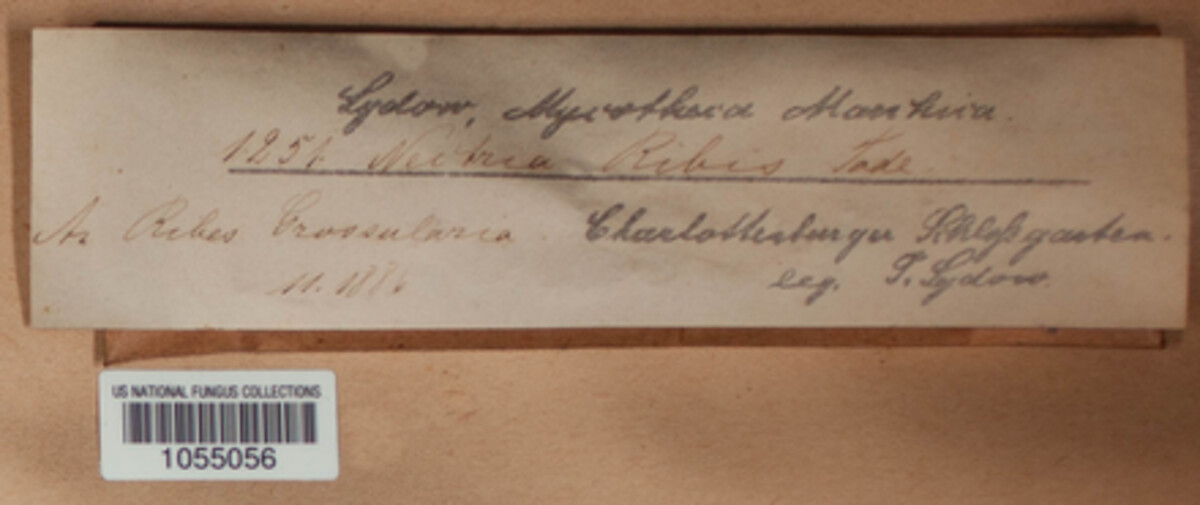 Sydow, Mycotheca Marchica.
1251. Nectria Ribis Tode
An Ribes Grossularia. Charlottenburger Schloßgarten.
11. 1886 leg. P. Sydow.
US NATIONAL FUNGUS COLLECTIONS
1055056